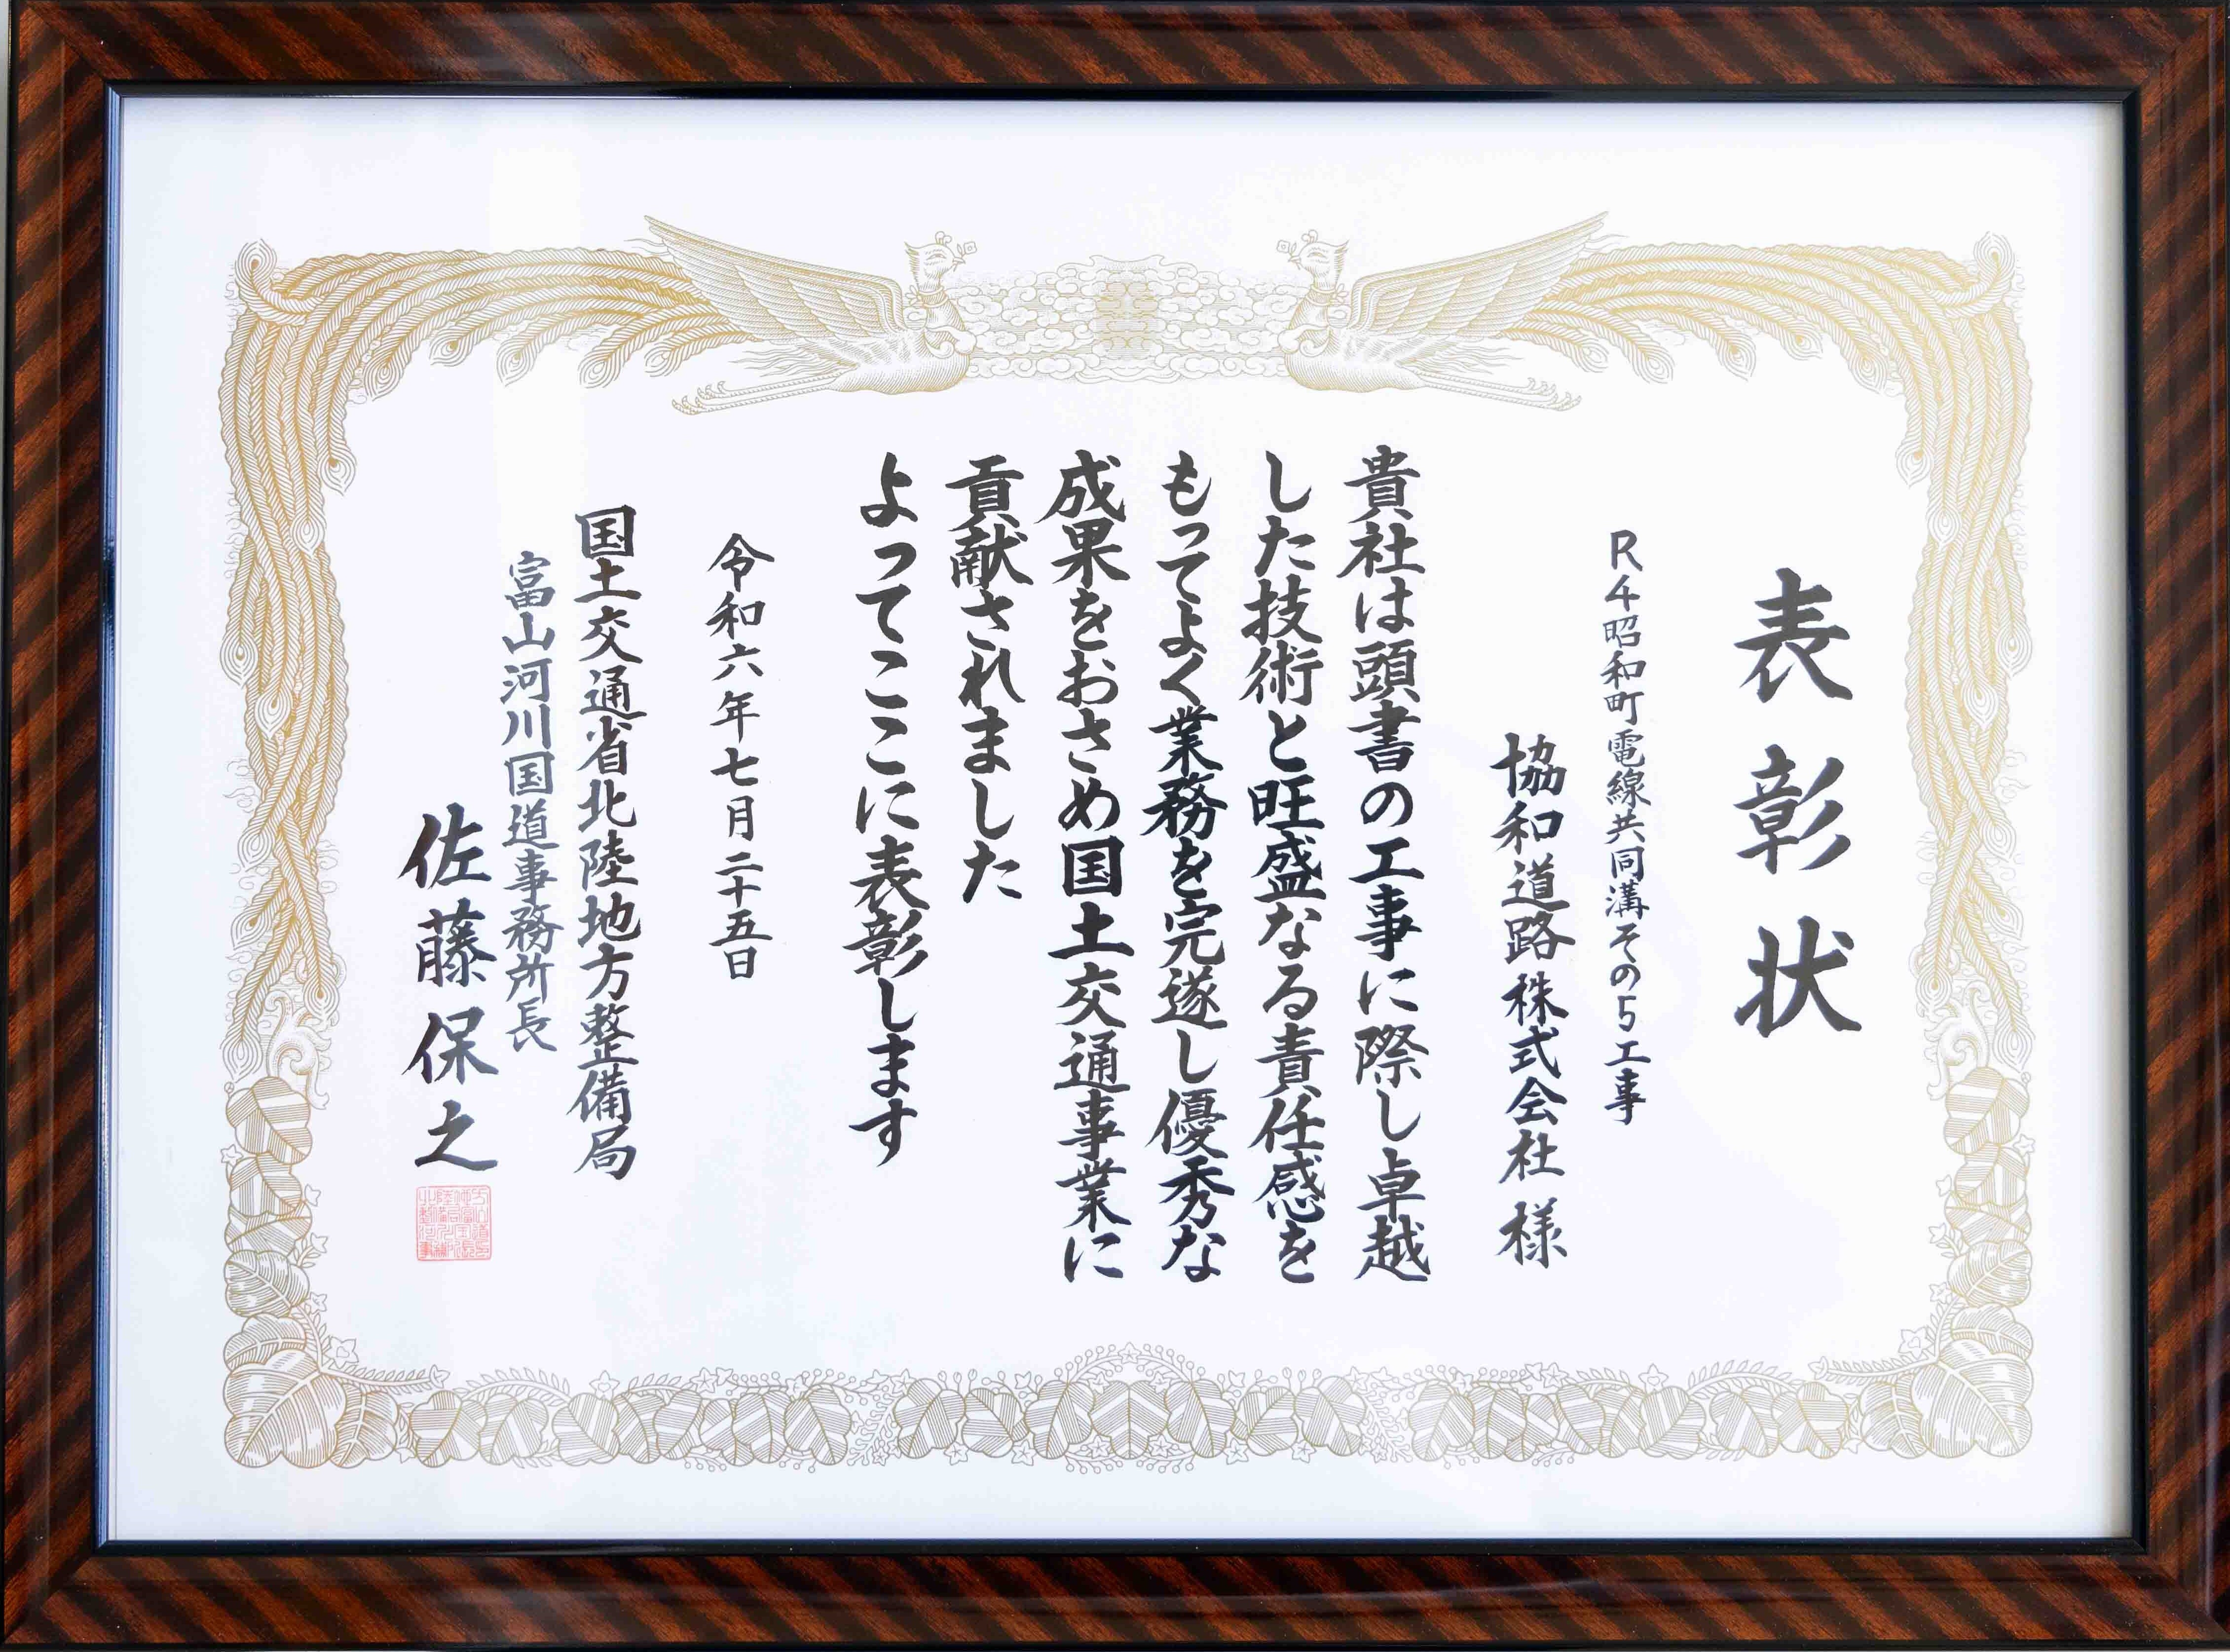 表彰状
R4昭和町電線共同溝その5工事
協和道路株式会社 様
貴社は頭書の工事に際し卓越
した技術と旺盛なる責任感を
もってよく業務を完遂し優秀な
成果をおさめ国土交通事業に
貢献されました
よってここに表彰します
令和六年七月二十五日
国土交通省北陸地方整備局
富山河川国道事務所長
佐藤保之